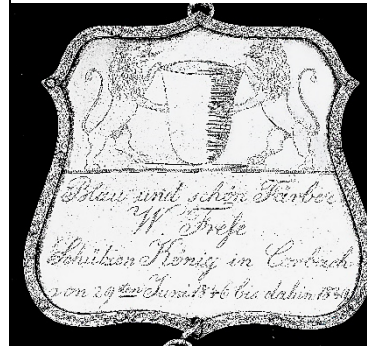 Blau und schön Färber
W Frese
Schützen König in Corbach
von 29ten Juni 1846 bis dahin 1849